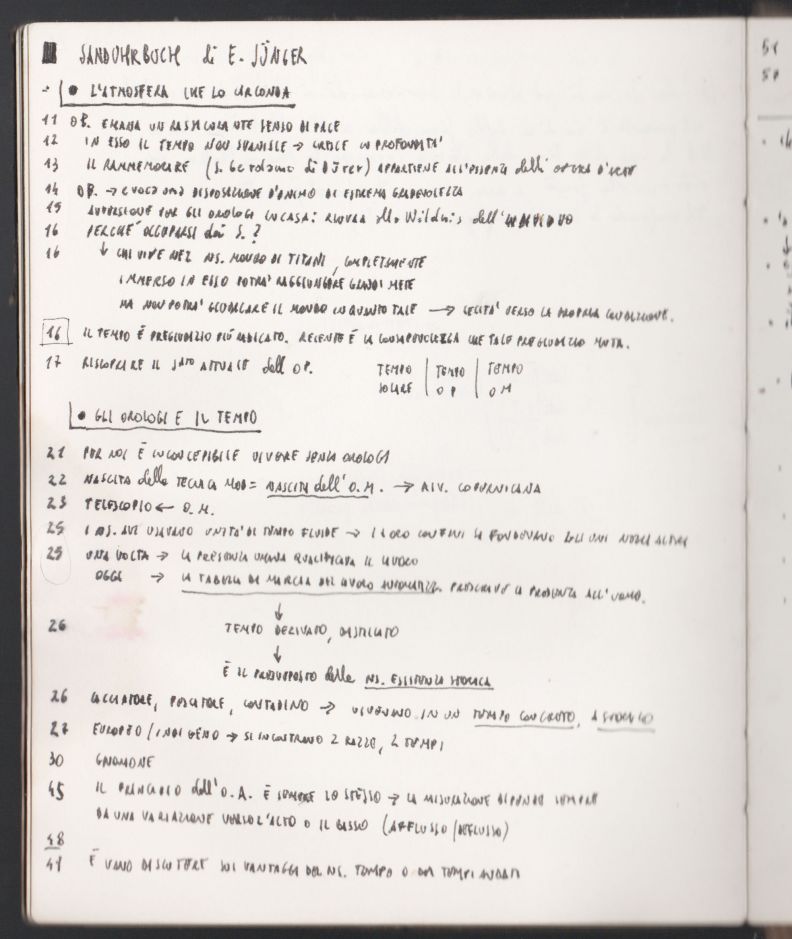 SANDUHRBUCH di E. JÜNGER
• L'ATMOSFERA CHE LO CIRCONDA
11 OP. EMANA UN RASSICURANTE SENSO DI PACE
12 IN ESSO IL TEMPO NON SVANISCE → CRESCE IN PROFONDITÀ
13 IL RAMMEMORARE (S. Gerolamo di Dürer) APPARTIENE ALL'ESSENZA dell' OPERA D'ARTE
14 OP. → EVOCA UNA DISPOSIZIONE D'ANIMO DI ESTREMA GRADEVOLEZZA
15 AVVERSIONE PER GLI OROLOGI IN CASA: allo Wildnis dell'INDIVIDUO
16 PERCHÉ OCCUPARSI dei S.?
16 ↓ CHI VIVE NEL NS. MONDO DI TITANI, COMPLETAMENTE
IMMERSO IN ESSO POTRÀ RAGGIUNGERE GRANDI METE
MA NON POTRÀ GIUDICARE IL MONDO IN QUANTO TALE → CECITÀ VERSO LA PROPRIA CONDIZIONE.
16 IL TEMPO È PREGIUDIZIO PIÙ RADICATO. RECENTE È LA CONSAPEVOLEZZA CHE TALE PREGIUDIZIO MUTA.
17 RISCOPRIRE IL ATTUALE dell OP. TEMPO SOLARE | TEMPO OP | TEMPO OM
• GLI OROLOGI E IL TEMPO
21 PER NOI È INCONCEPIBILE VIVERE SENZA OROLOGI
22 NASCITA della TECNICA MOD = NASCITA dell'O.M. → RIV. COPERNICANA
23 TELESCOPIO ← O.M.
25 I NS. AVI USAVANO UNITÀ DI TEMPO FLUIDE → I LORO CONFINI SI FONDEVANO GLI UNI NEGLI ALTRI
25 UNA VOLTA → LA PRESENZA UMANA QUALIFICAVA IL LAVORO
OGGI → LA TABELLA DI MARCIA DEL LAVORO AUTOMATIZZ. PRESCRIVE LA PRESENZA ALL'UOMO.
↓
26 TEMPO DERIVATO, DISTILLATO
↓
È IL PRESUPPOSTO della NS. ESISTENZA STORICA
26 CACCIATORE, PESCATORE, CONTADINO → VIVEVANO IN UN TEMPO CONCRETO,
27 EUROPEO / INDIGENO → SI INCONTRANO 2 RAZZE, 2 TEMPI
30 GNOMONE
45 IL PRINCIPIO dell'O.A. È SEMPRE LO STESSO → LA MISURAZIONE DIPENDE SEMPRE
DA UNA VARIAZIONE VERSO L'ALTO O IL BASSO (AFFLUSSO/DEFLUSSO)
48
49 È VANO DISCUTERE SUI VANTAGGI DEL NS. TEMPO O DEI TEMPI ANDATI